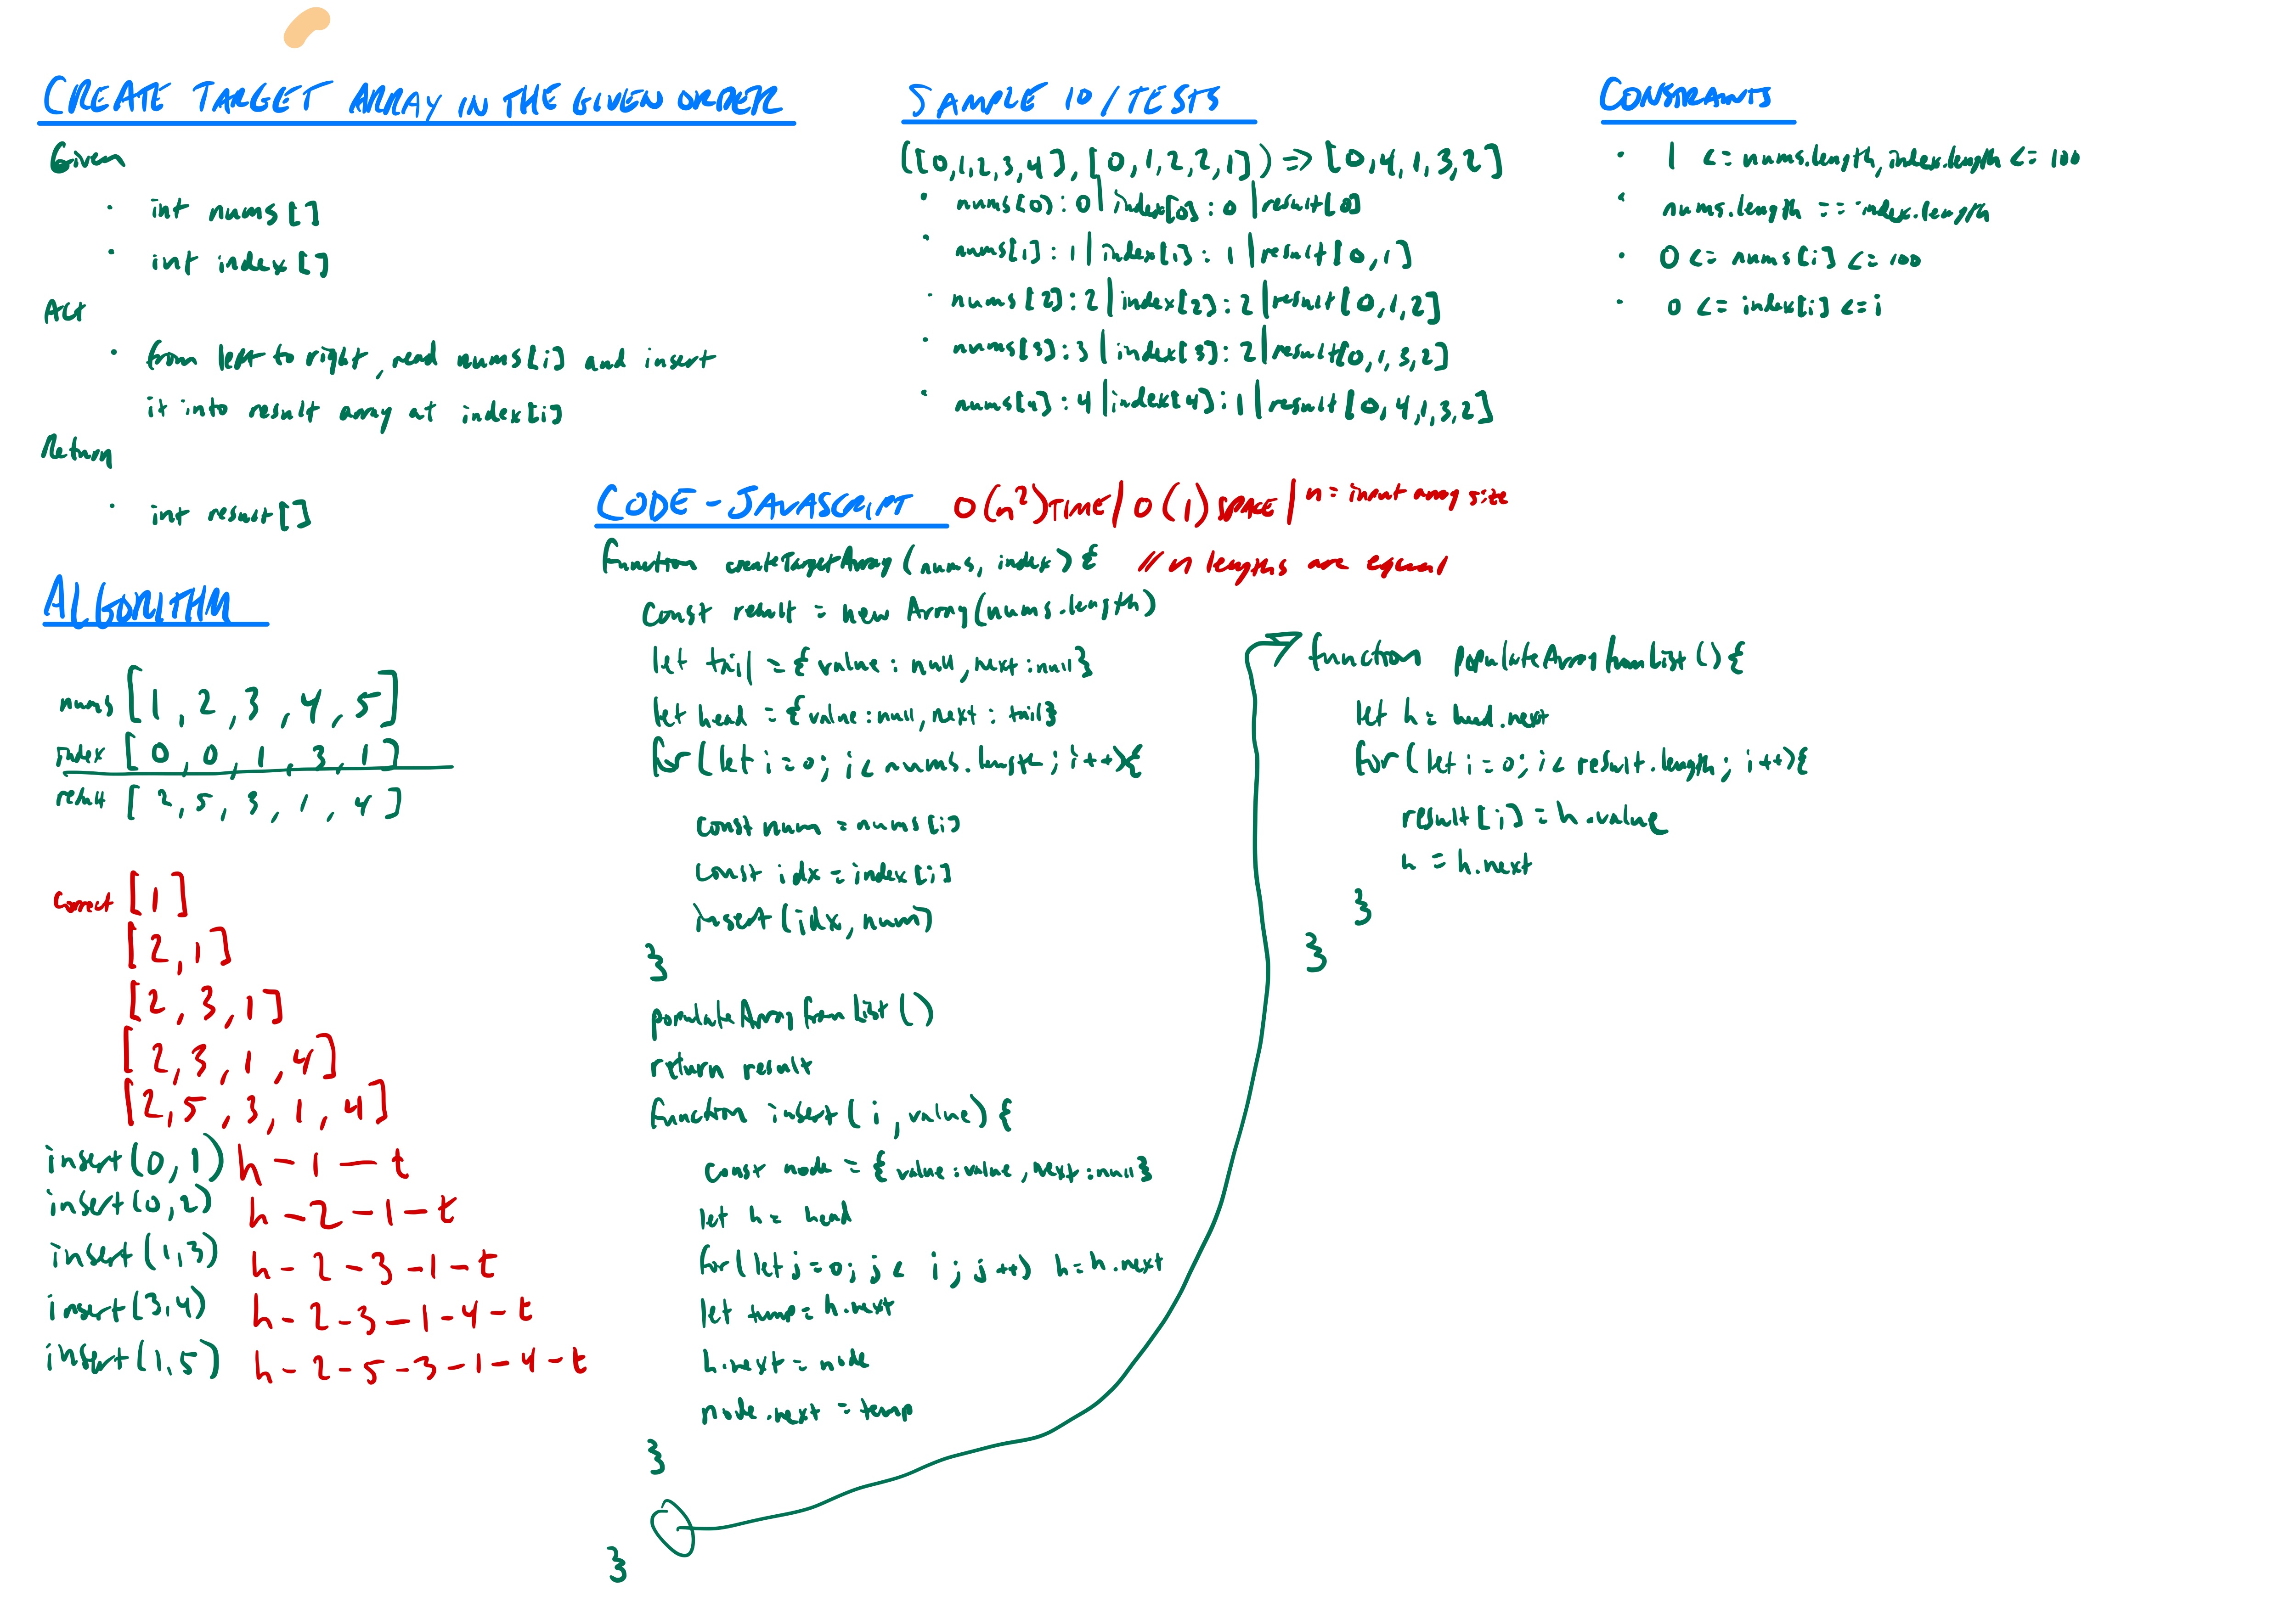 CREATE TARGET ARRAY IN THE GIVEN ORDER
Given
· int nums[]
· int index[]
Act
· from left to right, read nums[i] and insert
it into result array at index[i]
Return
· int result[]
SAMPLE IO/TESTS
([0,1,2,3,4],[0,1,2,2,1]) => [0,4,1,3,2]
· nums[0]:0|index[0]:0|result[0]
· nums[1]:1|index[1]:1|result[0,1]
· nums[2]:2|index[2]:2|result[0,1,2]
· nums[3]:3|index[3]:2|result[0,1,3,2]
· nums[4]:4|index[4]:1|result[0,4,1,3,2]
CONSTRAINTS
· 1 <= nums.length, index.length <= 100
· nums.length == index.length
· 0 <= nums[i] <= 100
· 0 <= index[i] <= i
ALGORITHM
nums [1,2,3,4,5]
index [0,0,1,3,1]
result [2,5,3,1,4]
correct [1]
[2,1]
[2,3,1]
[2,3,1,4]
[2,5,3,1,4]
insert(0,1) h-1-t
insert(0,2) h-2-1-t
insert(1,3) h-2-3-1-t
insert(3,4) h-2-3-1-4-t
insert(1,5) h-2-5-3-1-4-t
CODE - JAVASCRIPT O(n²) TIME/O(1) SPACE/n = input array size
function createTargetArray(nums, index){ // n lengths are equal
const result = new Array(nums.length)
let tail = {value: null, next: null}
let head = {value: null, next: tail}
for(let i=0; i< nums.length; i++){
const num = nums[i]
const idx = index[i]
insert(idx, num)
}
populateArrayfromList()
return result
function insert(i, value){
const node = {value: value, next: null}
let h = head
for(let j=0; j< i; j++) h=h.next
let temp = h.next
h.next = node
node.next = temp
}
}
function populateArrayfromList(){
let h = head.next
for(let i=0; i< result.length; i++){
result[i] = h.value
h = h.next
}
}